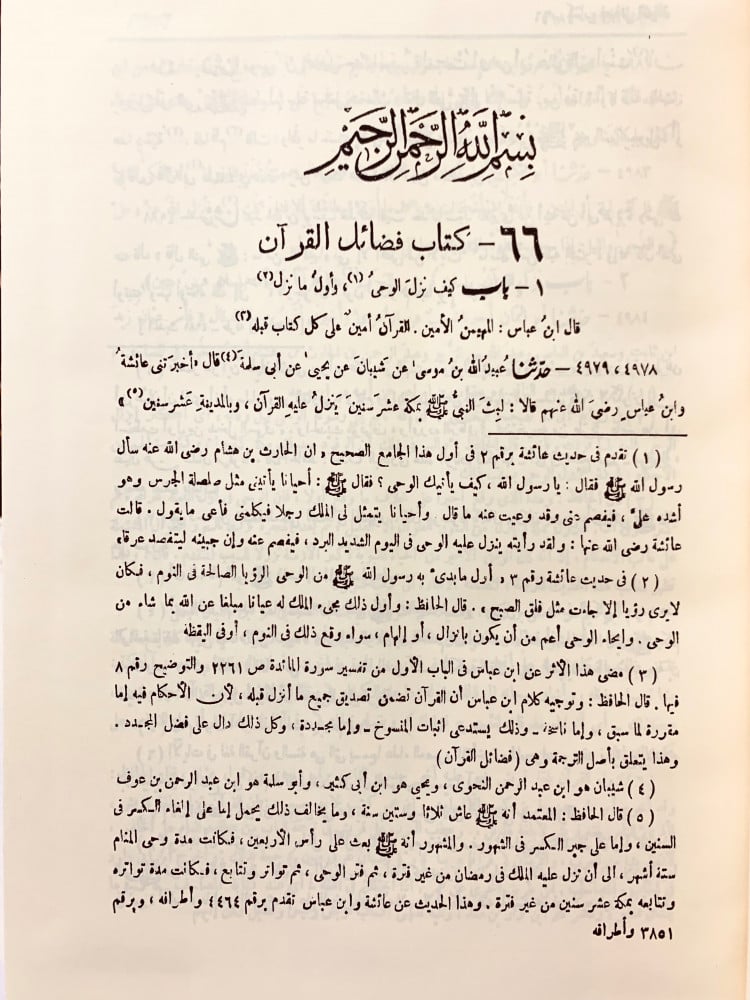 بِسْمِ اللَّهِ الرَّحْمَٰنِ الرَّحِيمِ
٦٦ – كتاب فضائل القرآن
١ – باب كيف نزلَ الوحىُ (١)، وأولُ ما نزل(٢)
قال ابنُ عباس : المهيمنُ الأمين . القرآنُ أمينٌ على كل كتاب قبله(٣)
٤٩٧٨ ، ٤٩٧٩ – حَدّثنا عُبيدُ الله بنُ موسىٰ عن شيبانَ عن يحيىٰ عن أبى سلمة(٤) قال «أخبرَتنى عائشةُ
وابنُ عباسٍ رضىَ الله عنهم قالا : لبِثَ النبىُّ ﷺ بمكةَ عشرَ سنينَ يَنزلُ عليهِ القرآن ، وبالمدينةِ عَشرَ سنين(٥) »
(١) تقدم فى حديث عائشة برقم ٢ فى أول هذا الجامع الصحيح « ان الحارث بن هشام رضى الله عنه سأل
رسول الله ﷺ فقال : يا رسول الله ، كيف يأتيك الوحى ؟ فقال ﷺ : أحيانا يأتينى مثل صلصلة الجرس وهو
أشده علىّ ، فيفصم عنى وقد وعيت عنه ما قال . وأحيانا يتمثل لى الملك رجلا فيكلمنى فأعى ما يقول . قالت
عائشة رضى الله عنها : ولقد رأيته ينزل عليه الوحى فى اليوم الشديد البرد ، فيفصم عنه وإن جبينه ليتفصد عرقا»
(٢) فى حديث عائشة رقم ٣ « أول ما بدىء به رسول الله ﷺ من الوحى الرؤيا الصالحة فى النوم ، فكان
لا يرى رؤيا إلا جاءت مثل فلق الصبح » . قال الحافظ : وأول ذلك مجىء الملك له عيانا مبلغا عن الله بما شاء من
الوحى . وإيحاء الوحى أعم من أن يكون بانزال ، أو إلهام ، سواء وقع ذلك فى النوم ، أو فى اليقظة
(٣) مضى هذا الأثر عن ابن عباس فى الباب الأول من تفسير سورة المائدة ص ٢٢٦١ والتوضيح رقم ٨
فيها . قال الحافظ : وتوجيه كلام ابن عباس أن القرآن تضمن تصديق جميع ما أنزل قبله ، لأن الأحكام فيه إما
مقررة لما سبق ، وإما ناسخة – وذلك يستدعى اثبات المنسوخ – وإما مجددة ، وكل ذلك دال على فضل المجدد .
وهذا يتعلق بأصل الترجمة وهى (فضائل القرآن)
(٤) شيبان هو ابن عبد الرحمن النحوى ، ويحيي هو ابن أبى كثير ، وأبو سلمة هو ابن عبد الرحمن بن عوف
(٥) قال الحافظ : المعتمد أنه ﷺ عاش ثلاثا وستين سنة ، وما يخالف ذلك يحمل إما على إلغاء الكسر فى
السنين ، وإما على جبر الكسر فى الشهور . والمشهور أنه ﷺ بعث على رأس الأربعين ، فكانت مدة وحى المنام
ستة أشهر ، الى أن نزل عليه الملك فى رمضان من غير فترة ، ثم فتر الوحى ، ثم تواتر وتتابع ، فكانت مدة تواتره
وتتابعه بمكة عشر سنين من غير فترة . وهذا الحديث عن عائشة وابن عباس تقدم برقم ٤٤٦٤ وأطرافه ، وبرقم
٣٨٥١ وأطرافه